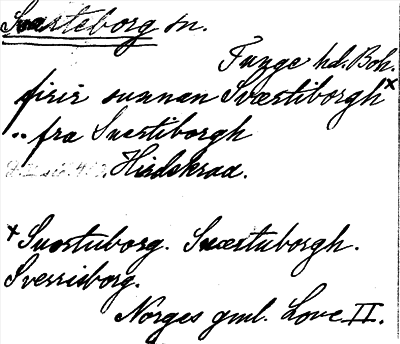 Svasteborg sn.
Tunge hd. Boh.
firir sunnan Sværstiborgh x
.. fra Suerstiborgh
Hirdskraa.
x Suorstuborg. Suærstuborgh.
Sverrisborg.
Norges gml. Love II.